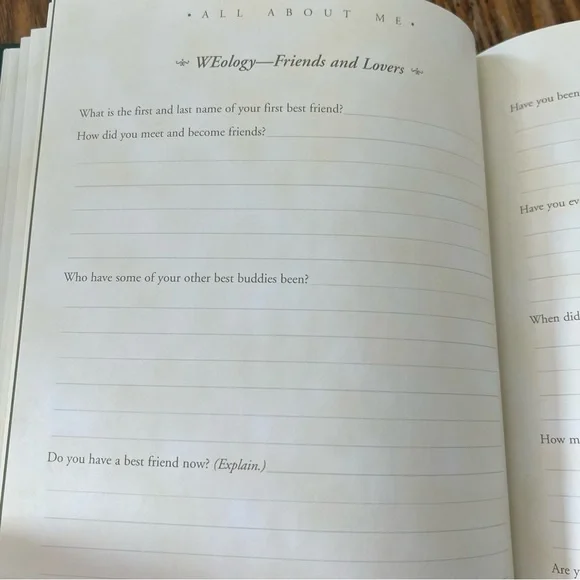 • ALL ABOUT ME •
WEology—Friends and Lovers
What is the first and last name of your first best friend?
How did you meet and become friends?
Who have some of your other best buddies been?
Do you have a best friend now? (Explain.)
Have you been
Have you
When did
How
Are